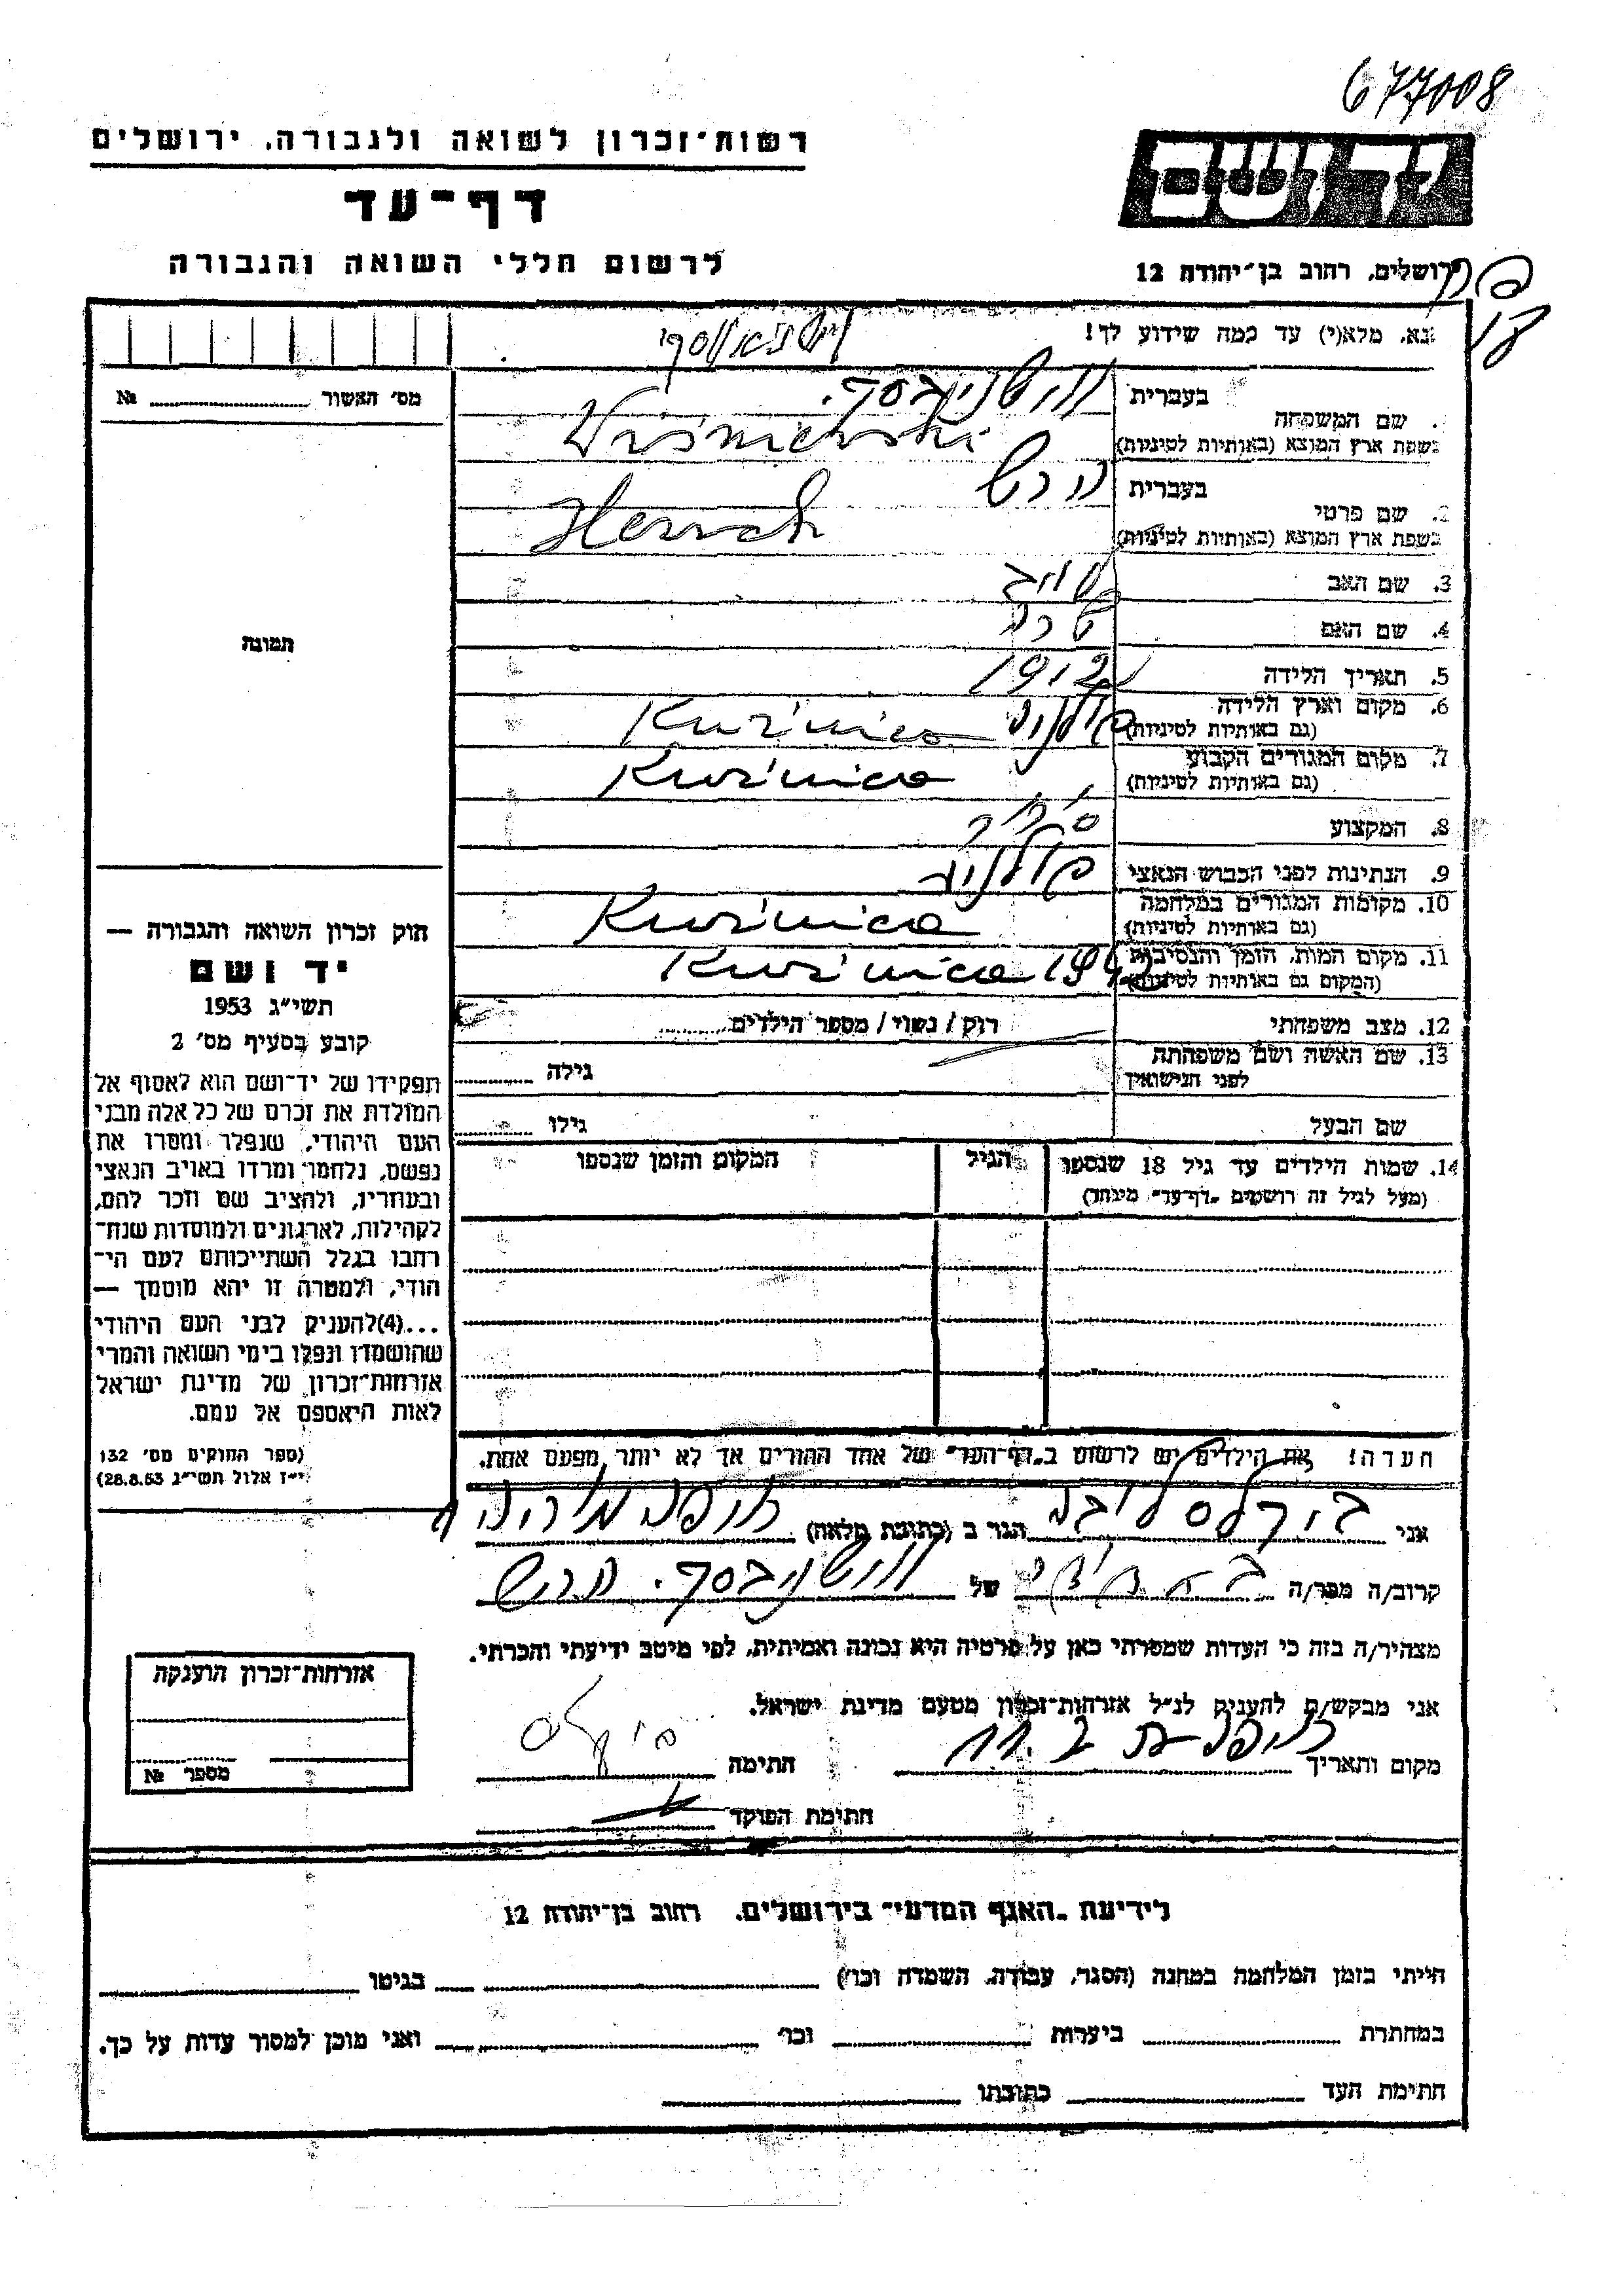 677008
רשות־זכרון לשואה ולגבורה, ירושלים
דף־עד
לרשום חללי השואה והגבורה
יד ושם
ירושלים, רחוב בן־יהודה 12
נא, מלא(י) עד כמה שידוע לך!
מס׳ האשור № 
בעברית
שם המשפחה
בשפת ארץ המוצא (באותיות לטיניות) Wiśniewski
בעברית הרש
2. שם פרטי
בשפת ארץ המוצא (באותיות לטיניות) Hersch
3. שם האב
4. שם האם שרה
5. תאריך הלידה 1912
6. מקום וארץ הלידה פולניה Kuźnica
(גם באותיות לטיניות)
7. מקום המגורים הקבוע Kuźnica
(גם באותיות לטיניות)
8. המקצוע
9. הנתינות לפני הכבוש הנאצי
10. מקומות המגורים במלחמה Kuźnica
(גם באותיות לטיניות)
11. מקום המות, הזמן והנסיבות Kuźnica 1942
(המקום גם באותיות לטיניות)
12. מצב משפחתי רווק / נשוי / מספר הילדים
13. שם האשה ושם משפחתה גילה
לפני הנישואין
שם הבעל גילו
14. שמות הילדים עד גיל 18 שנספו הגיל המקום והזמן שנספו
(מעל לגיל זה רושמים „דף־עד” מיוחד)
הערה! את הילדים יש לרשום ב„דף־העד” של אחד ההורים אך לא יותר מפעם אחת.
תמונה
חוק זכרון השואה והגבורה —
יד ושם
תשי״ג 1953
קובע בסעיף מס׳ 2
תפקידו של יד־ושם הוא לאסוף אל
המולדת את זכרם של כל אלה מבני
העם היהודי, שנפלו ומסרו את
נפשם, נלחמו ומרדו באויב הנאצי
ובעוזריו, ולהציב שם וזכר להם,
לקהילות, לארגונים ולמוסדות שנח־
רבו בגלל השתייכותם לעם הי־
הודי, ולמטרה זו יהא מוסמך —
...(4)להעניק לבני העם היהודי
שהושמדו ונפלו בימי השואה והמרי
אזרחות־זכרון של מדינת ישראל
לאות היאספם אל עמם.
(ספר החוקים מס׳ 132
י״ז אלול תשי״ג 28.8.53)
אני הגר ב (כתובת מלאה)
קרוב/ה מכר/ה של הרש
מצהיר/ה בזה כי העדות שמסרתי כאן על פרטיה היא נכונה ואמיתית, לפי מיטב ידיעתי והכרתי.
אני מבקש/ת להעניק לנ״ל אזרחות־זכרון מטעם מדינת ישראל.
מקום ותאריך חתימה
חתימת הפוקד
אזרחות־זכרון הוענקה
מספר №
לידיעת „האגף המדעי” בירושלים, רחוב בן־יהודה 12
הייתי בזמן המלחמה במחנה (הסגר, עבודה, השמדה וכו׳) בגיטו
במחתרת ביערות וכו׳ ואני מוכן למסור עדות על כך.
חתימת העד כתובתו